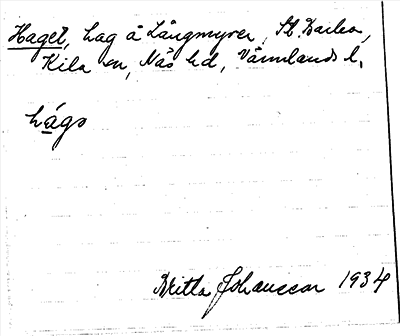 Haget, hag å Långmyren, St. Backa,
Kila sn, Näs hd, Värmlands l.
hágs
Britta Johansson 1934